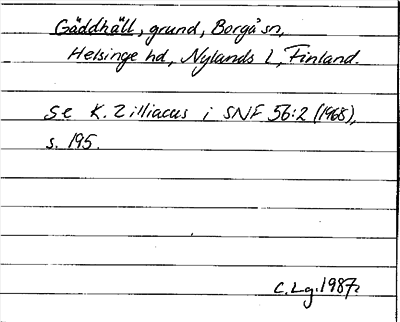 Gäddhäll, grund, Borgå sn,
Helsinge hd, Nylands l, Finland.
Se K. Zilliacus i SNF 56:2 (1968),
s. 195.
C. Lg. 1987.